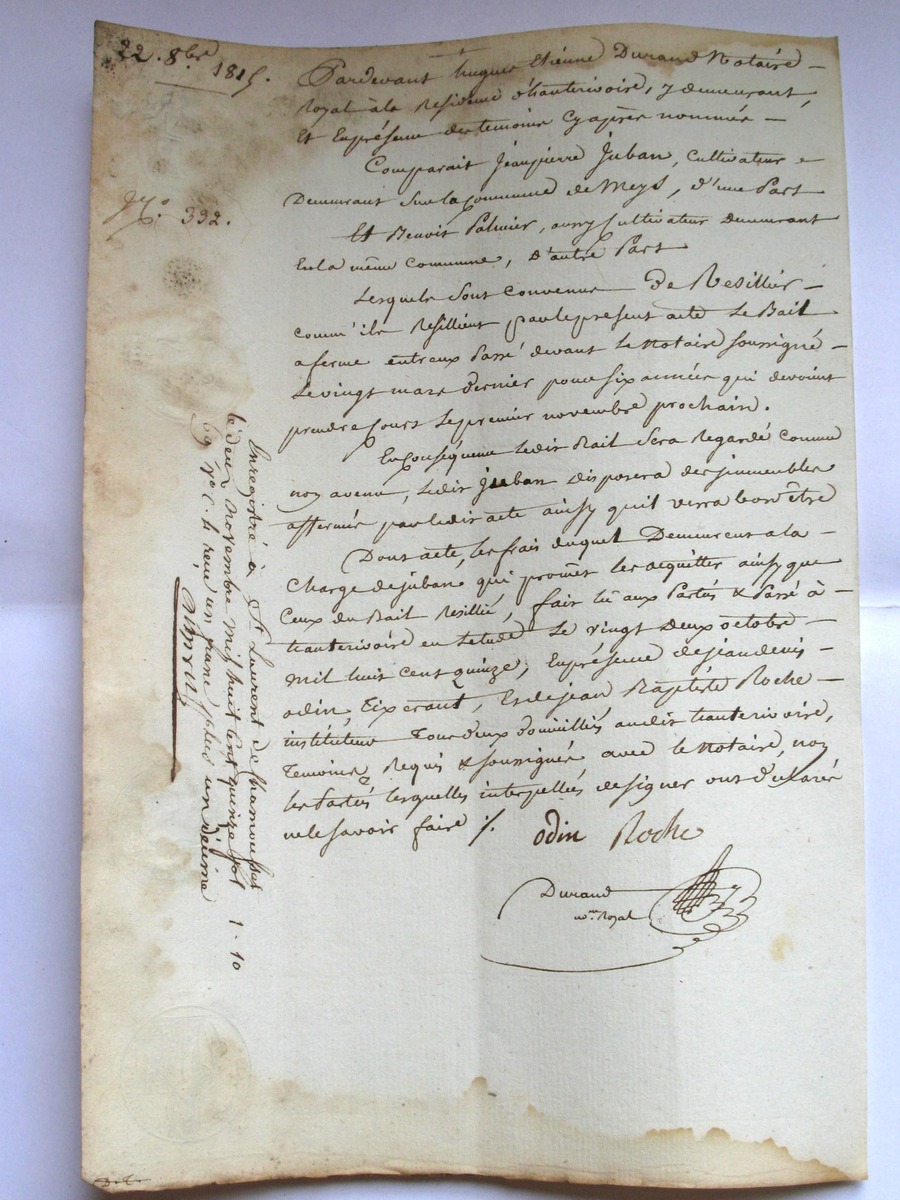 22. 8bre 1815.
N°. 332.
Pardevant hugues Etiénne Durand Notaire
Royal à la Residence d'hauterivoire, y demeurant,
Et En présence des temoins Cyaprès nommés
Comparait Jeanpierre Juban, Cultivateur
Demeurant Sur la Commune de Meys, d'une Part
Et Benoit Palmier, aussy Cultivateur Demeurant
En la même Commune, D'autre Part
Lesquels Sont convenus De Resillier
comm'ils Resillient par le présent acte Le Bail
a ferme entr'eux Passé devant Le Notaire soussigné
Le vingt mars dernier pour six années qui devoient
prendre Cours Le premier novembre prochain.
En Conséquence Ledit Bail Sera Regardé Comme
non avenu, Ledit Juban disposera des immeubles
affermés par ledit acte ainsy qu'il verra bon être
Dont acte, les frais duquel Demeurent a la
Charge de juban qui promet les acquitter ainsy que
Ceux du Bail Resillié, fait lu aux Parties & Passé à
hauterivoire en Letude Le vingt deux octobre
mil huit Cent quinze, En présence de jean denis
odin Tixerant, Et de jean Baptiste Roche
instituteur Tous deux domiciliés audit hauterivoire,
Temoins Requis & soussignés avec le Notaire, non
les Parties lesquelles interpellées de signer ont declaré
ne le savoir faire ./.
odin Roche
Durand
nore. Royal
Enregistré à St Laurent de Chamousset
le deux novembre mil huit cent quinze fol
69 r° c. 4 reçu un franc plus un décime
1-10